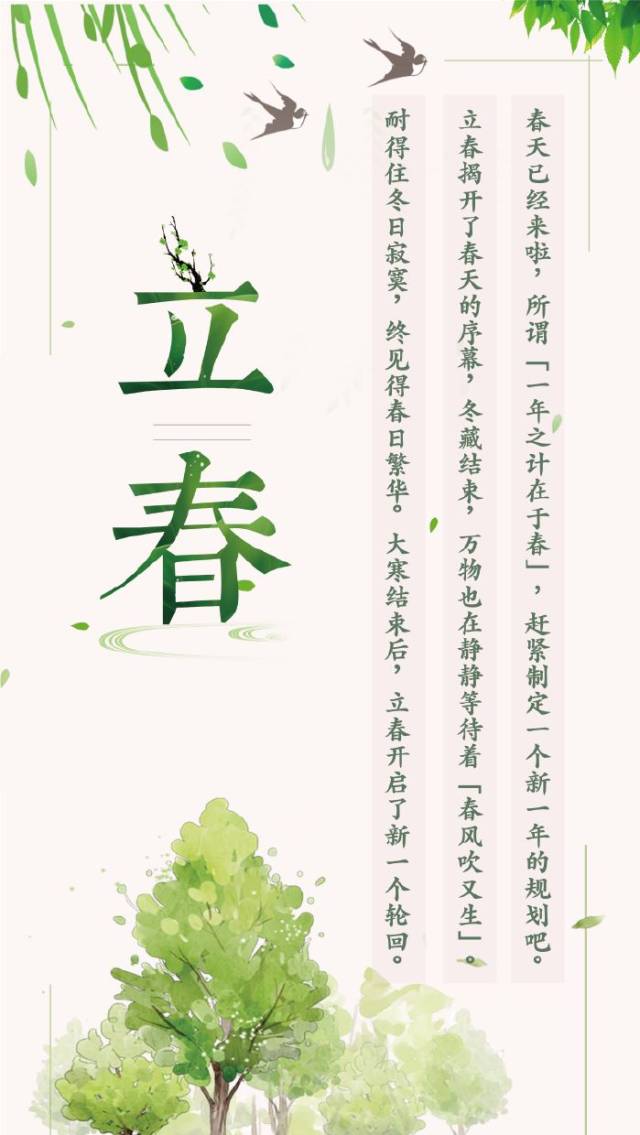 立春
春天已经来啦，所谓「一年之计在于春」，赶紧制定一个新一年的规划吧。
立春揭开了春天的序幕，冬藏结束，万物也在静静等待着「春风吹又生」。
耐得住冬日寂寞，终见得春日繁华。大寒结束后，立春开启了新一个轮回。